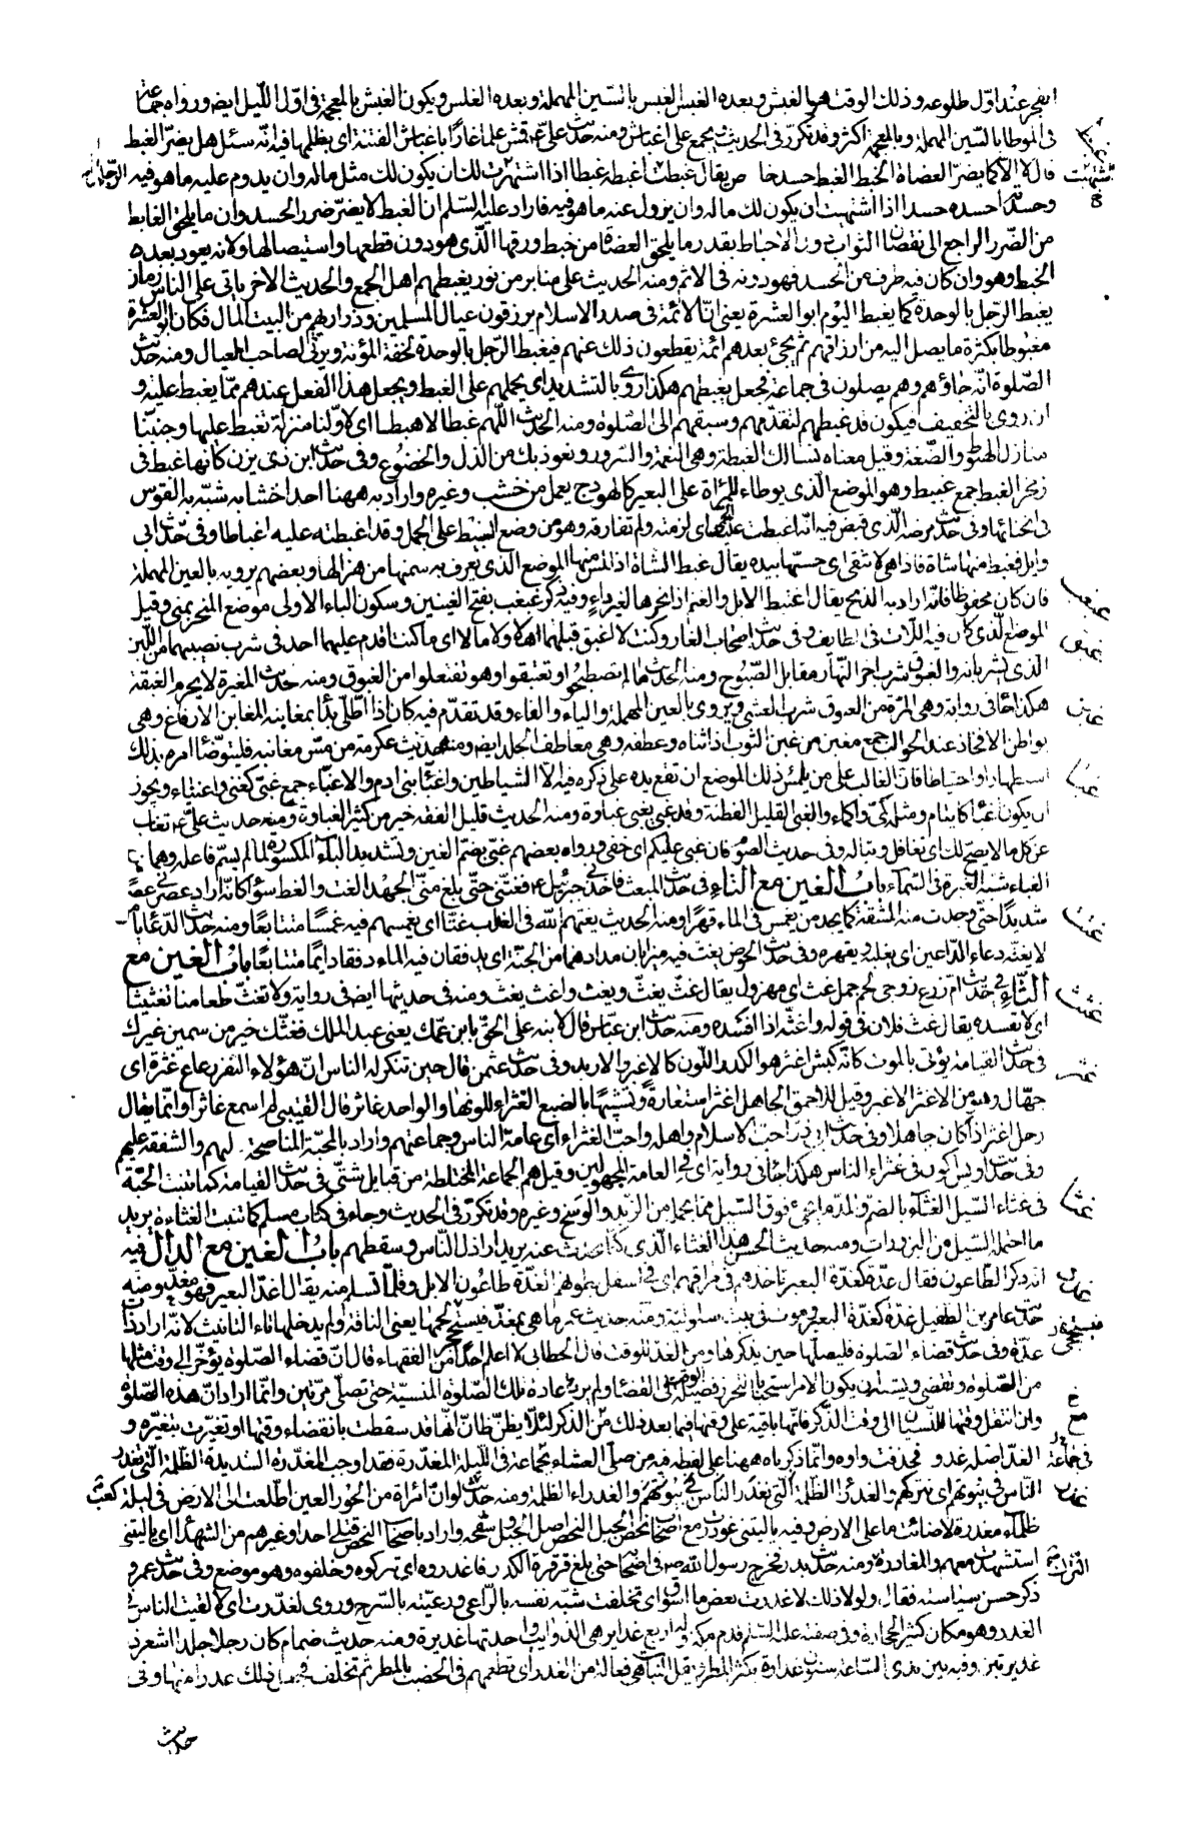 الفجر عند اول طلوعه وذلك الوقت هو الغبش وبعده الغبس بالسين المهملة وبعده الغلس ويكون الغبش بالمعجمة فى اول الليل ايضه ورواه جماعة
فى الموطا بالسين المهملة وبالمعجمة اكثر وقد تكرر فى الحديث ويجمع على اغباش ومنه حديث على قمش علما غارا باغباش الفتنة اى بظلمها فيه انه سئل هل يضر الغبط
قال لا الا كما يضر العضاة الخبط الغبط حسد خاص يقال غبطت اغبطه غبطا اذا اشتهيت ان يكون لك مثل ماله وان يدوم عليه ما هو فيه
وحسدته احسده حسدا اذا اشتهيت ان يكون لك ماله وان يزول عنه ما هو فيه فاراد عليه السلم ان الغبط لا يضر ضرر الحسد وان ما يلحق الغابط
من الضرر الراجع الى نقصان الثواب دون الاحباط بقدر ما يلحق العضاة من خبط ورقها الذى هو دون قطعها واستيصالها ولانه يعود بعد
الخبط وهو وان كان فيه طرف من الحسد فهو دونه فى الاثم ومنه الحديث على منابر من نور يغبطهم اهل الجمع والحديث الاخر ياتى على الناس زمان
يغبط الرجل بالوحدة كما يغبط اليوم ابو العشرة يعنى ان الائمة فى صدر الاسلام يرزقون عيال المسلمين وذراريهم من البيت المال فكان ابو العشرة
مغبوطا بكثرة ما يصل اليه من ارزاقهم ثم يجئ بعدهم ائمة يقطعون ذلك عنهم فيغبط الرجل بالوحدة لخفة المؤنة ويرثى لصاحب العيال ومنه حديث
الصلوة انه جاؤهم وهم يصلون فى جماعة فجعل يغبطهم هكذا روى بالتشديد اى يحملهم على الغبط ويجعل هذا الفعل عندهم مما يغبط عليه و
ان روى بالتخفيف فيكون قد غبطهم لتقدمهم وسبقهم الى الصلوة ومنه الحديث اللهم غبطا لا هبطا اى اولنا منزلة نغبط عليها وجنبنا
منازل الهبوط والضعة وقيل معناه نسالك الغبطة وهى النعمة والسرور ونعوذ بك من الذل والخضوع وفى حديث ابن ذى يزن كانها غبط فى
زمخر الغبط جمع غبيط وهو الموضع الذى يوطاء للمراة على البعير كالهودج يعمل من خشب وغيره واراد به ههنا احد اخشابه شبه به القوس
فى انحنائها وفى حديث مرضه الذى قبض فيه انه اغبطت عليه الحمى اى لزمته ولم تفارقه وهو من وضع الغبيط على الجمل وقد اغبطته عليه اغباطا وفى حديث ابى
وايل فغبط منها شاة فاذا هى لا تنقى اى حسها بيده يقال غبط الشاة اذا لمس منها الموضع الذى يعرف به سمنها من هزالها وبعضهم يرويه بالعين المهملة
فان كان محفوظا فانه اراد به الذبح يقال اعتبط الابل والغنم اذا نحرها لغير داء وفيه ذكر غبغب بفتح الغينين وسكون الباء الاولى موضع المنحر بمنى وقيل
الموضع الذى كان فيه اللات فى الطايف وفى حديث اصحاب الغار وكنت لا اغبق قبلهما اهلا ولا مالا اى ما كنت اقدم عليهما احد فى شرب نصيبهما من اللبن
الذى يشربانه والغبوق شرب اخر النهار مقابل الصبوح ومنه الحديث ما لم تصطبحوا او تغتبقوا وهو تفتعلوا من الغبوق ومنه حديث المغيرة لا يحرم الغبقة
هكذا جاء فى رواية وهى المرة من الغبوق شرب العشى ويروى بالعين المهملة والياء والفاء وقد تقدم فيه كان اذا اطلى بدأ بمغابنه المغابن الارفاغ وهى
بواطن الافخاذ عند الحوالب جمع مغبن من غبن الثوب اذا ثناه وعطفه وهى معاطف الجلد ايضه ومنه حديث عكرمة من مس مغابنه فليتوضا امره بذلك
استظهارا واحتياطا فان الغالب على من يلمس ذلك الموضع ان تقع يده على ذكره فيه الا الشياطين واغبياء بنى ادم والاغبياء جمع غبى كغنى واغنياء ويجوز
ان يكون اغباء كايتام ومثله كمى واكماء والغبى القليل الفطنة وقد غبى يغبى غباوة ومنه الحديث قليل الفقه خير من كثير الغباوة ومنه حديث على تغاب
عن كل ما لا يصح لك اى تغافل وتباله وفى حديث الصوم فان غبى عليكم اى خفى ورواه بعضهم غبى بضم الغين وتشديد الباء المكسورة لما لم يسم فاعله وهما من
الغباء شبه الغبرة فى السماء باب الغين مع التاء فى حديث المبعث فاخذنى جبرئيل فغتنى حتى بلغ منى الجهد الغت والغط سواء كانه اراد عصرنى عصرا
شديدا حتى وجدت منه المشقة كما يجد من يغمس فى الماء قهرا ومنه الحديث يغتهم الله فى العذاب غتا اى يغمسهم فيه غمسا متتابعا ومنه حديث الدعاء يا من
لا يغته دعاء الداعين اى يغلبه ويقهره وفى حديث الحوض يغت فيه ميزابان مدادهما من الجنة اى يدفقان فيه الماء دفقا دايما متتابعا باب الغين مع
الثاء فى حديث ام زرع زوجى لحم جمل غث اى مهزول يقال غث يغث ويغث واغث يغث ومنه فى حديثها ايضه فى رواية ولا تغث طعامنا تغثيثا
اى لا تفسده يقال غث فلان فى قوله واغثه اذا افسده ومنه حديث ابن عباس قال لابنه على الحق بابن عمك يعنى عبد الملك فغثك خير من سمين غيرك
فى حديث القيامة يؤتى بالموت كانه كبش اغثر هو الكدر اللون كالاغبر والاربد وفى حديث عثمن قال حين تنكر له الناس ان هؤلاء النفر رعاع غثرة اى
جهال وهو من الاغثر الاغبر وقيل للاحمق الجاهل اغثر استعارة وتشبيها بالضبع الغثراء للونها والواحد غاثر قال القتيبى لم اسمع غاثرا وانما يقال
رجل اغثر اذا كان جاهلا وفى حديث ابى ذر احب الاسلام واهله واحب الغثراء اى عامة الناس وجماعتهم واراد بالمحبة المناصحة لهم والشفقة عليهم
وفى حديث اويس اكون فى غثراء الناس هكذا جاء فى رواية اى فى العامة المجهولين وقيل هم الجماعة المختلطة من قبايل شتى فى حديث القيامة كما تنبت الحبة
فى غثاء السيل الغثاء بالضم والمد ما يجئ فوق السيل مما يحمله من الزبد والوسخ وغيره وقد تكرر فى الحديث وجاء فى كتاب مسلم كما تنبت الغثاءة يريد
ما احتمله السيل من البزورات ومنه حديث الحسن هذا الغثاء الذى كنا نحدث عنه يريد اراذل الناس وسقطهم باب الغين مع الدال فيه
انه ذكر الطاعون فقال غدة كغدة البعير تاخذهم فى مراقهم اى فى اسفل بطونهم الغدة طاعون الابل وقلما تسلم منه يقال اغد البعير فهو مغد ومنه
حديث عامر بن الطفيل غدة كغدة البعير وموت فى بيت سلولية ومنه حديث عمر ما هى بمغد فيستحجى لحمها يعنى الناقة ولم يدخلها تاء التانيث لانه اراد ذات
غدة وفى حديث قضاء الصلوة فليصلها حين يذكرها ومن الغد للوقت قال الخطابى لا اعلم احدا من الفقهاء قال ان قضاء الصلوة يؤخر الى وقت مثلها
من الصلوة وتقضى ويشبه ان يكون الامر استحبابا لتحرز فضيلة الوقت فى القضاء ولم يرد اعادة تلك الصلوة المنسية حتى تصلى مرتين وانما اراد ان هذه الصلوة
وان انتقل وقتها للنسيان الى وقت الذكر فانها باقية على وقتها فيما بعد ذلك من الذكر لئلا يظن ظان انها قد سقطت بانقضاء وقتها او تغيرت بتغيره و
الغد اصله غدو فحذفت واوه وانما ذكرناه ههنا على لفظه فيه من صلى العشاء فى جماعة فى الليلة المغدرة فقد اوجب المغدرة الشديدة الظلمة التى تغدر
الناس فى بيوتهم اى تتركهم والغدراء الظلمة التى تغدر الناس فى بيوتهم والغدراء الظلمة ومنه حديث كعب لو ان امراة من الحور العين اطلعت الى الارض فى ليلة
ظلماء مغدرة لاضائت ما على الارض وفيه يا ليتنى غودرت مع اصحاب نحص الجبل النحص اصل الجبل وسفحه واراد باصحاب النحص قتلى احد او غيرهم من الشهداء اى يا ليتنى
استشهدت معهم والمغادرة الترك ومنه حديث بدر فخرج رسول الله صه فى اصحابه حتى بلغ قرقرة الكدر فاغدروه اى تركوه وخلفوه وهو موضع وفى حديث عمر و
ذكر حسن سياسته فقال ولولا ذلك لاغدرت بعض ما اسوق اى تخلفت شبه نفسه بالراعى ورعيته بالسرح وروى لغدرت اى لالقيت الناس فى
الغدر وهو مكان كثير الحجارة وفى صفته عليه السلم قدم مكة وله اربع غداير هى الذوايب واحدتها غديرة ومنه حديث ضمام كان رجلا جلدا اشعر ذا
غديرتين وفيه بين يدى الساعة سنون غدارة يكثر المطر ويقل النبات هى فعالة من الغدر اى تطمعهم فى الخصب بالمطر ثم تخلف فجعل ذلك غدرا منها وفى
حديث
غبط
غبغب
غبق
غبن
غبا
غتت
غثث
غثر
غثا
غدد
غدر